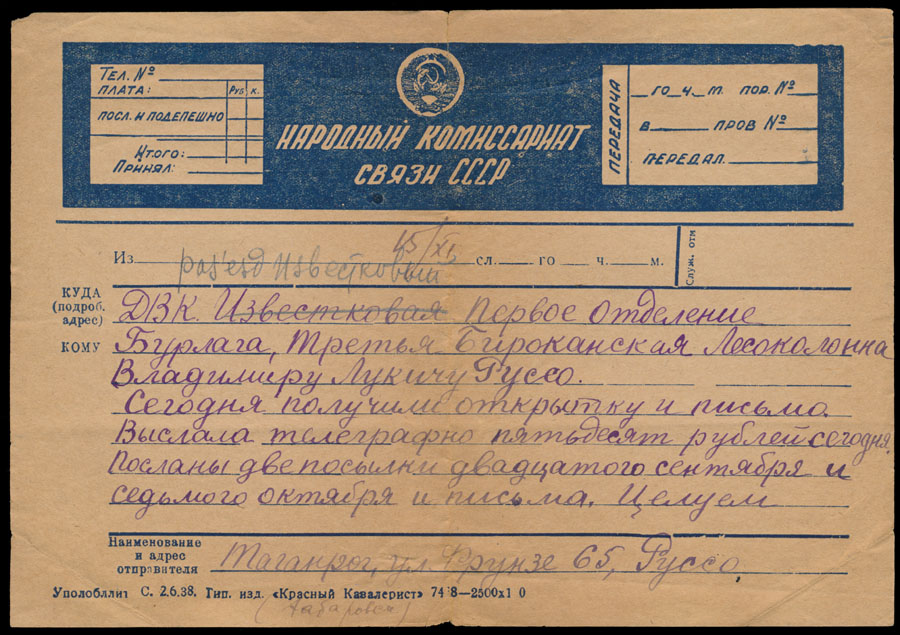 ТЕЛ. №
ПЛАТА: РУБ К.
ПОСЛ. И ПОДЕПЕШНО
ИТОГО:
ПРИНЯЛ:
НАРОДНЫЙ КОМИССАРИАТ
СВЯЗИ СССР
ПЕРЕДАЧА
ГО Ч. М. ПОР. №
В ПРОВ №
ПЕРЕДАЛ
15/XI
Из раз'езд Известковый сл. го ч. м.
Служ. отм
КУДА
(подроб.
адрес)
ДВК Известковая Первое Отделение
КОМУ Бурлага, Третья Бироканская Лесоколонна
Владимиру Лукичу Руссо.
Сегодня получили открытку и письмо.
Выслала телеграфно пятьдесят рублей сегодня.
Посланы две посылки двадцатого сентября и
седьмого октября и письма. Целуем
Наименование
и адрес
отправителя
Таганрог, ул Фрунзе 65, Руссо
Уполоблит С. 2.6.38. Гип. изд. «Красный Кавалерист» 74 8—2500х1 0
(Хабаровск)